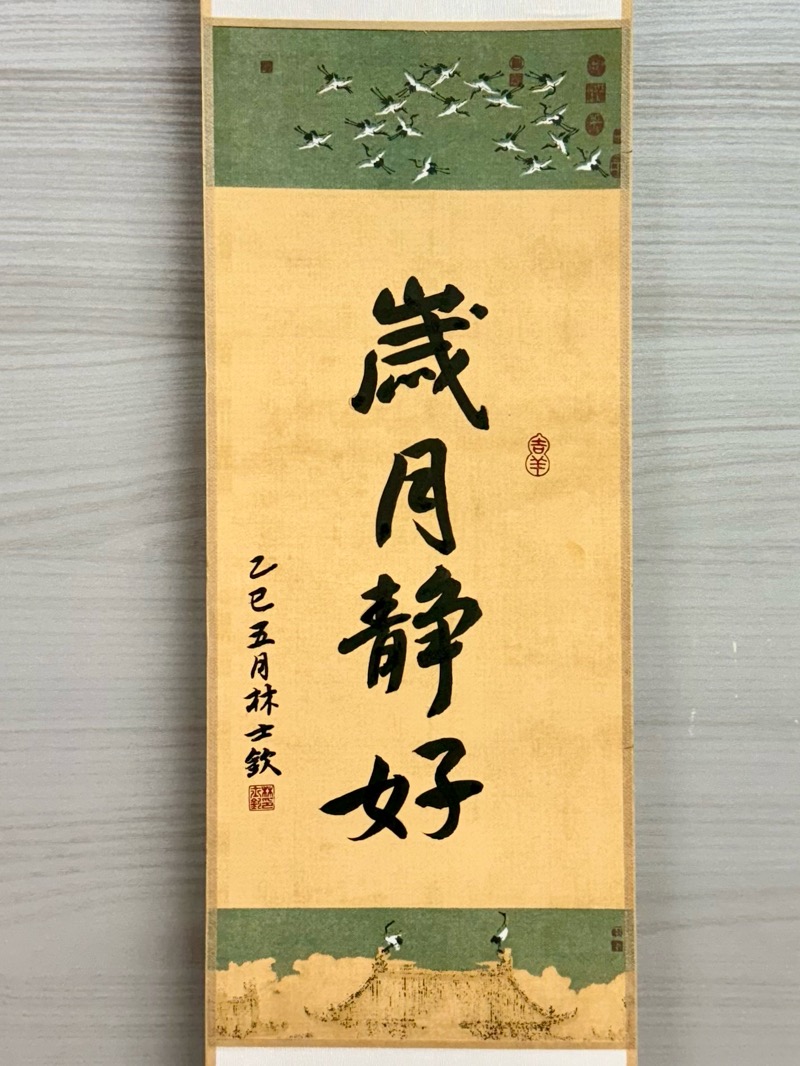 歲月靜好
吉羊
乙巳五月林士欽